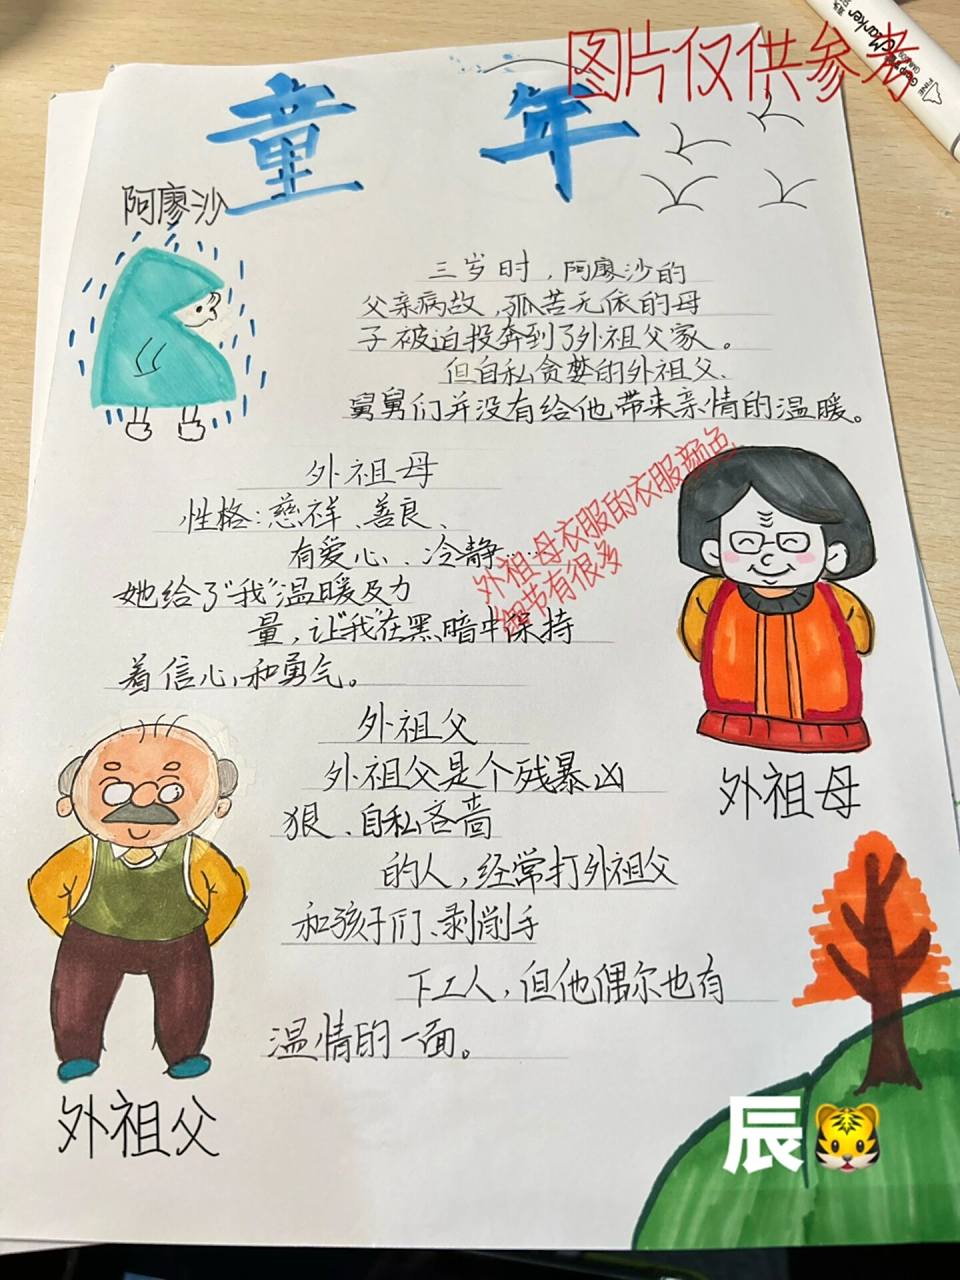 图片仅供参考
Marker
FINE
童 年
阿廖沙
三岁时，阿廖沙的
父亲病故，孤苦无依的母
子被迫投奔到了外祖父家。
但自私贪婪的外祖父、
舅舅们并没有给他带来亲情的温暖。
外祖母
性格：慈祥、善良、
有爱心、冷静……
她给了“我”温暖及力
量，让“我”在黑暗中保持
着信心和勇气。
外祖母衣服的衣服颜色
细节有很多
外祖母
外祖父
外祖父是个残暴凶
狠、自私吝啬
的人，经常打外祖父
和孩子们、剥削手
下工人，但他偶尔也有
温情的一面。
外祖父
辰🐯